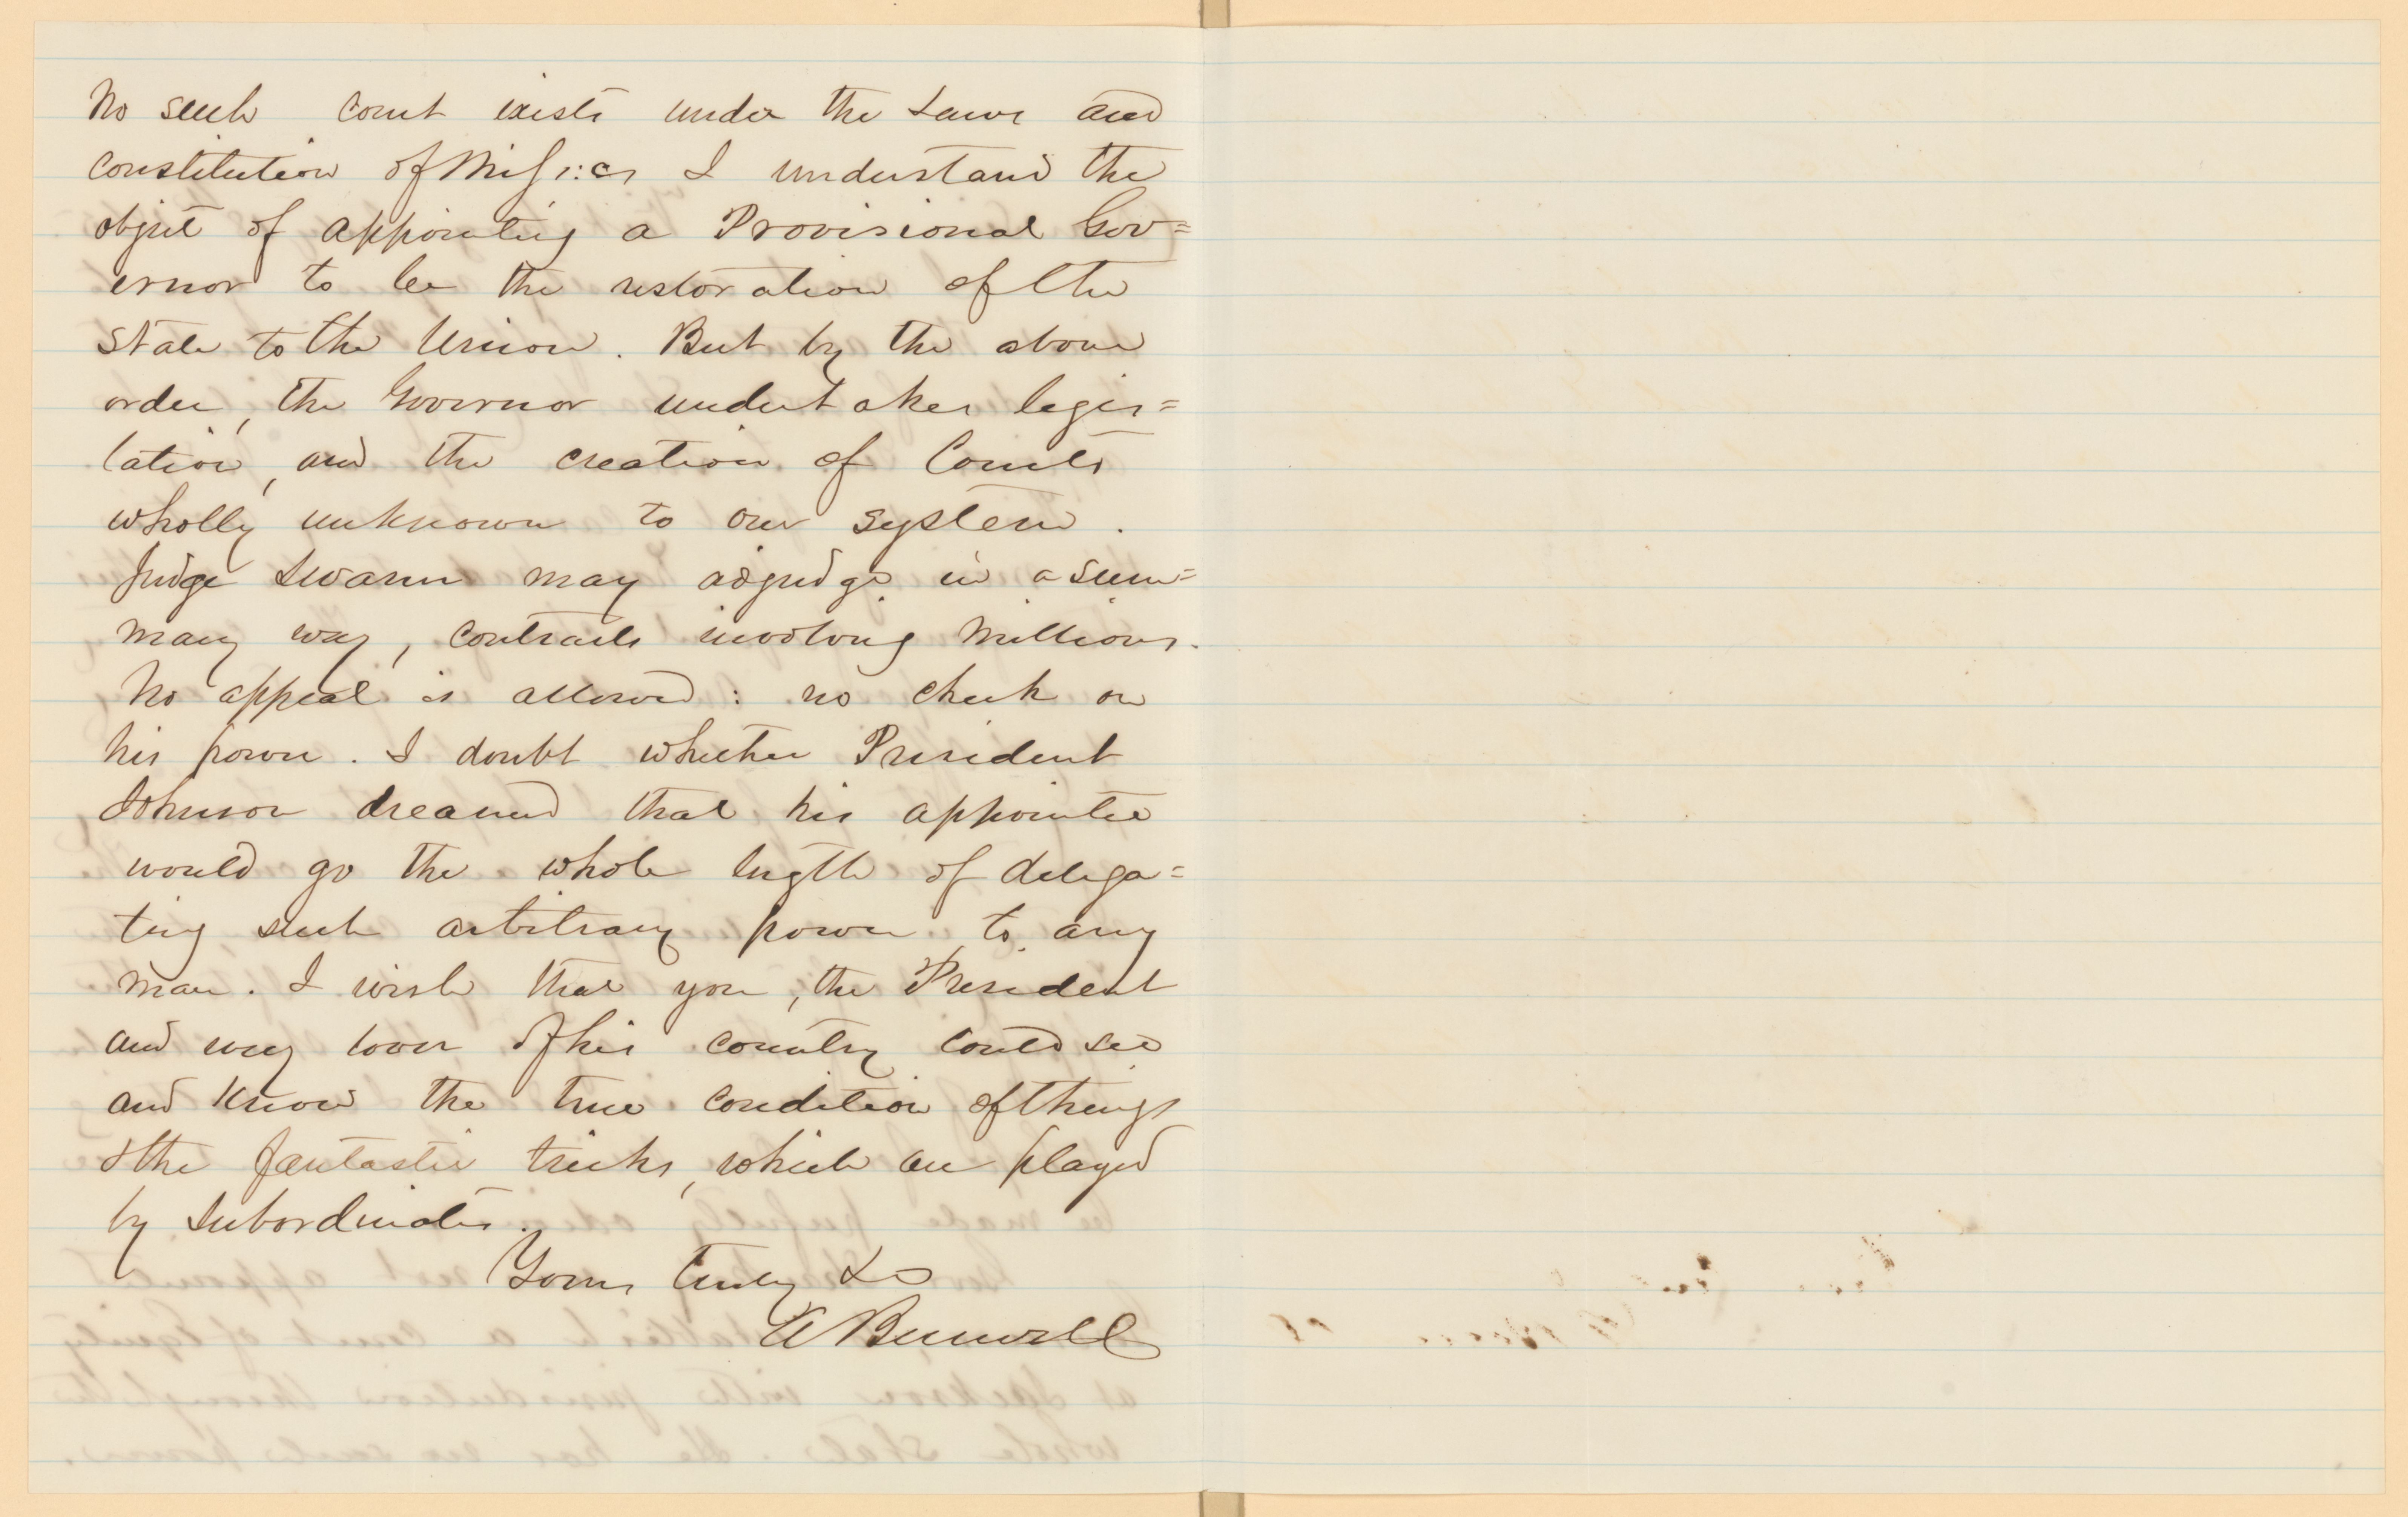 No such court exists under the Laws and
constitution of Miss: as I understand the
object of appointing a Provisional Gov=
ernor to be the restoration of the
State to the Union. But by the above
order, the Governor undertakes legis=
lation, and the creation of Courts
wholly unknown to our system.
Judge Swann may adjudge in a sum=
mary way, contracts involving Millions.
No appeal is allowed: no check on
his power. I doubt whether President
Johnson dreamed that his appointee
would go the whole length of delega=
ting such arbitrary power to any
man. I wish that you, the President
and every lover of his country could see
and know the true condition of things
& the fantastic tricks, which are played
by subordinates.
Yours truly &c
A Burwell